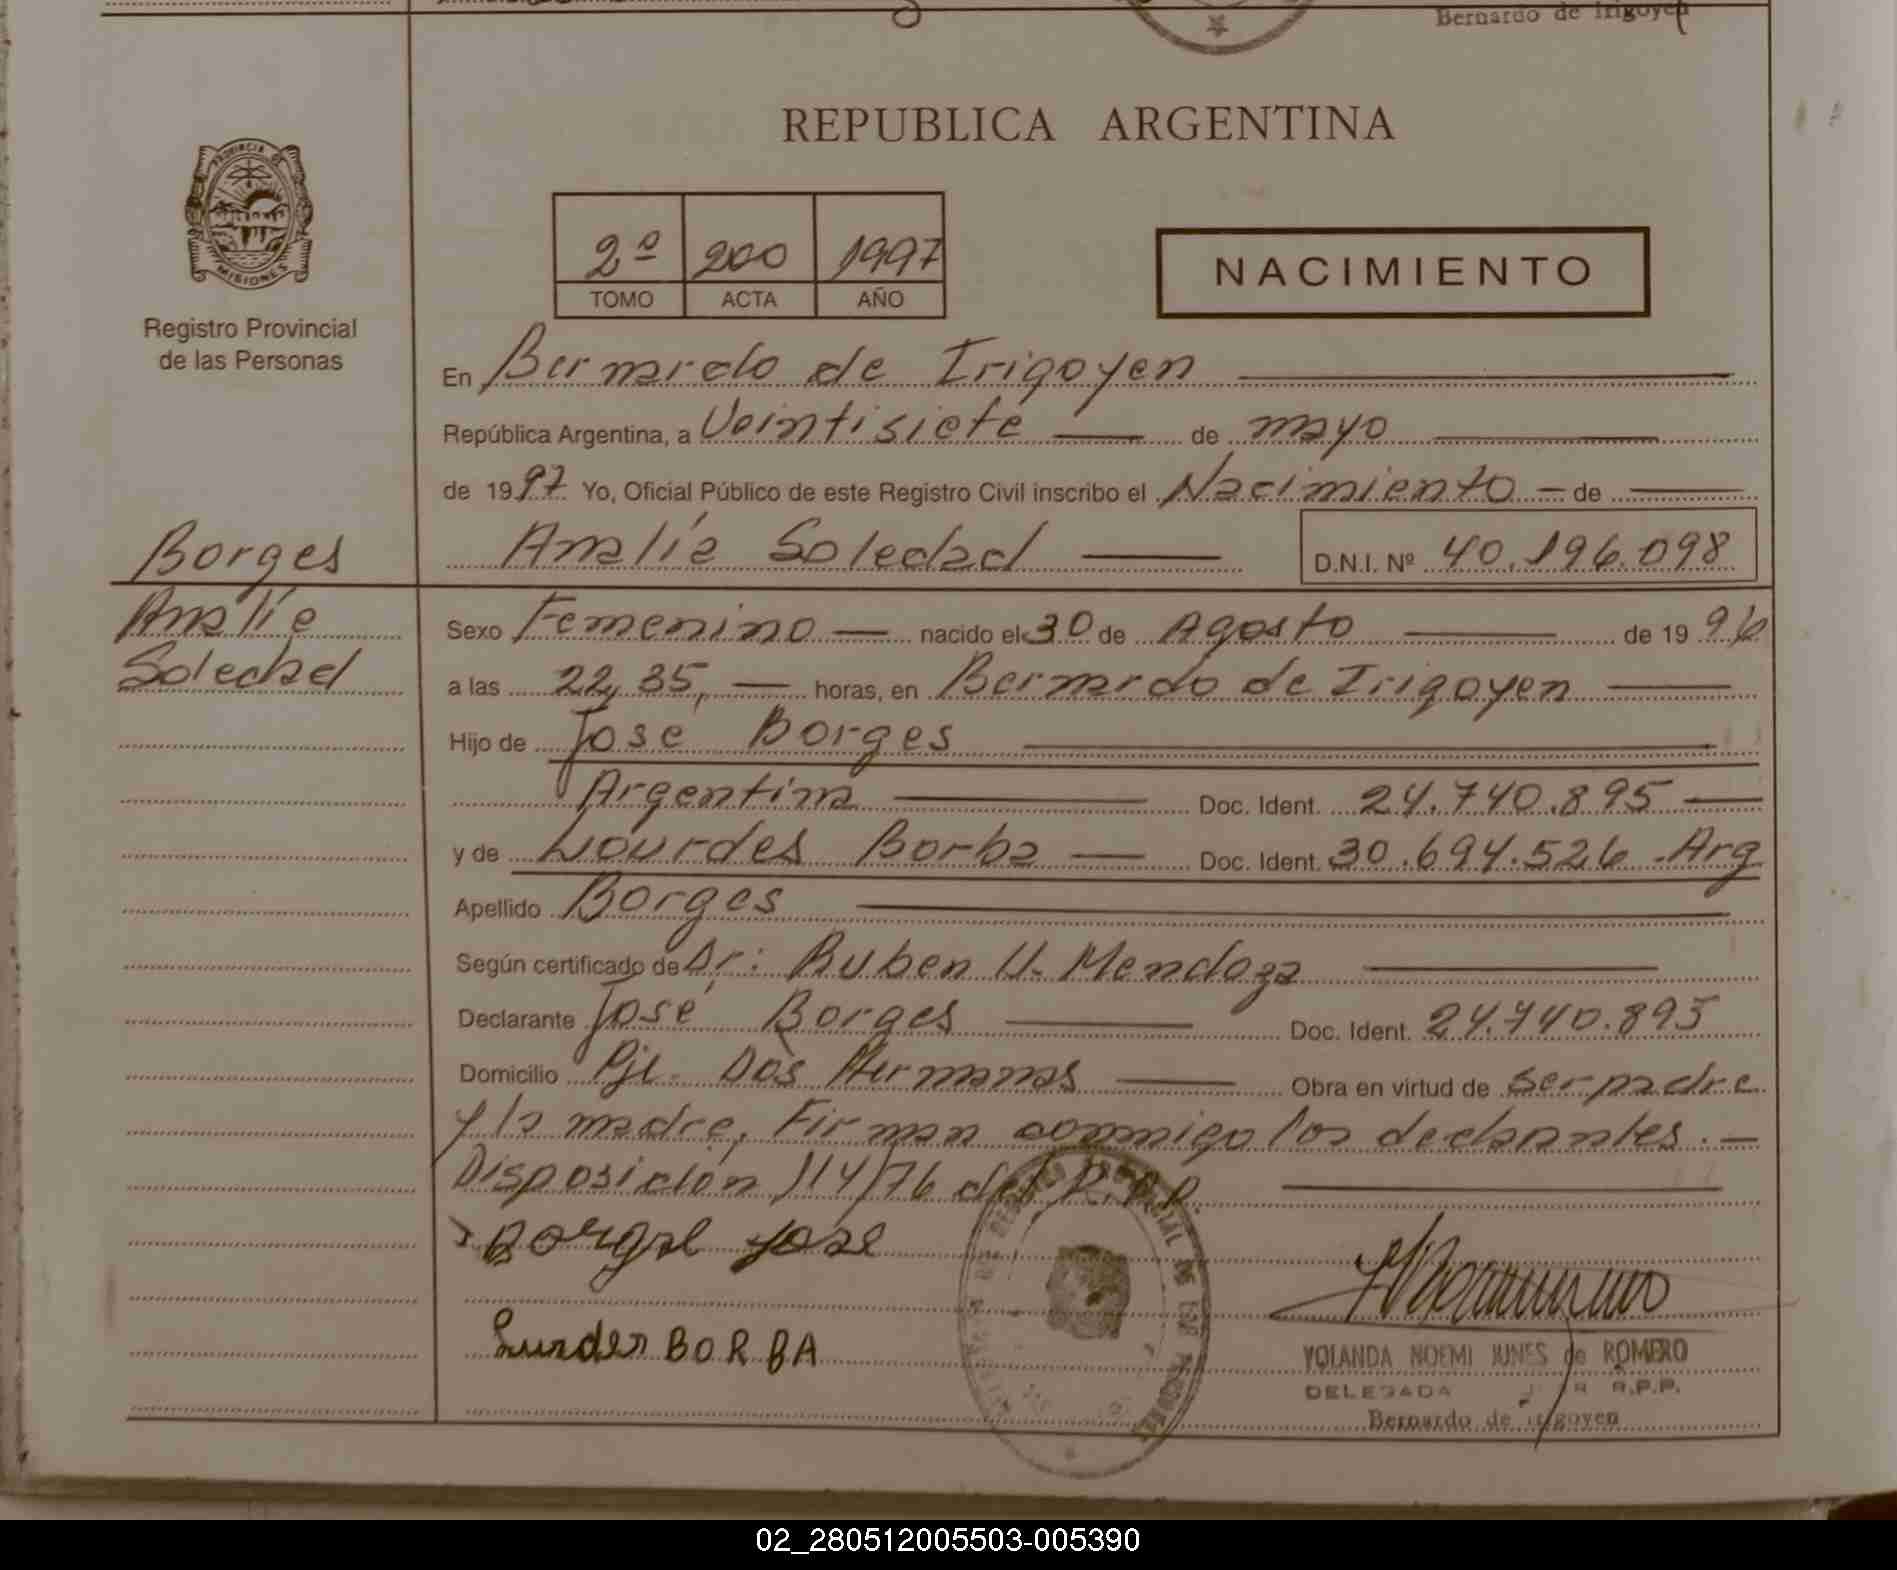 Bernardo de Irigoyen
REPUBLICA ARGENTINA
PROVINCIA DE
MISIONES
Registro Provincial
de las Personas
2º 200 1997
TOMO ACTA AÑO
NACIMIENTO
En Bernardo de Irigoyen
República Argentina, a Veintisiete de mayo
de 1997 Yo, Oficial Público de este Registro Civil inscribo el Nacimiento de
Analía Soledad D.N.I. Nº 40.196.098
Borges
Analía
Soledad
Sexo Femenino nacido el 30 de Agosto de 1996
a las 22,35, horas, en Bernardo de Irigoyen
Hijo de José Borges
Argentina Doc. Ident. 24.740.895
y de Lourdes Borba Doc. Ident. 30.694.526 Arg
Apellido Borges
Según certificado de Dr: Ruben U. Mendoza
Declarante José Borges Doc. Ident. 24.740.895
Domicilio Pje. Dos Hermanas Obra en virtud de ser padre
y la madre, Firman conmigo los declarantes.-
Disposición 114/76 del R.P.P.
Borges Jose
Lurdes BORBA
YOLANDA NOEMI JUNES de ROMERO
DELEGADA R.P.P.
Bernardo de Irigoyen
02_280512005503-005390